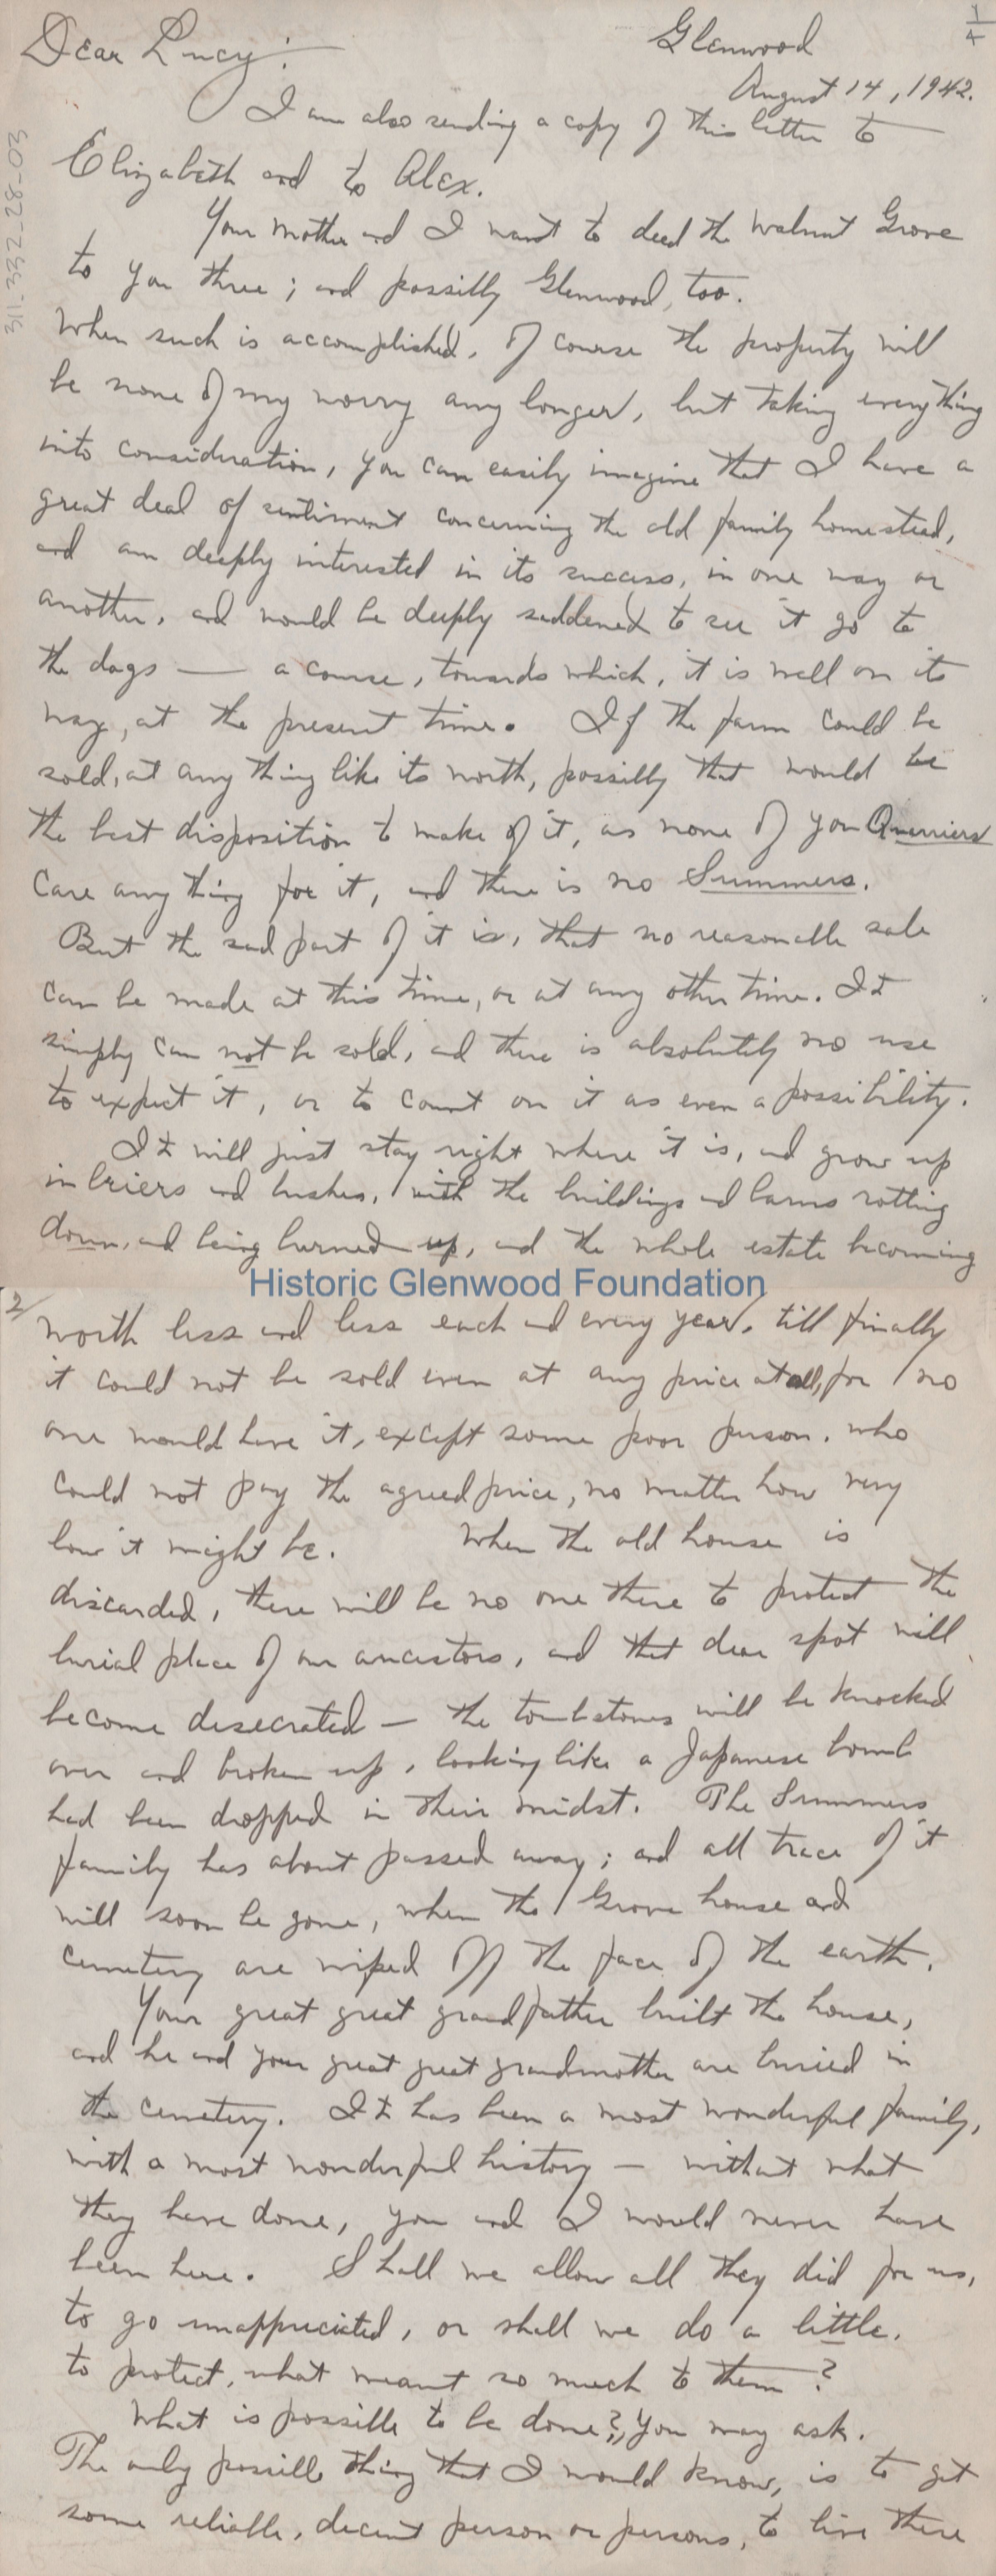 1/4
Glenwood
August 14, 1942.
Dear Lucy:
I am also sending a copy of this letter to
Elizabeth and to Alex.
Your mother and I want to deed the Walnut Grove
to you three; and possibly Glenwood, too.
When such is accomplished, of course the property will
be none of my worry any longer, but taking everything
into consideration, you can easily imagine that I have a
great deal of sentiment concerning the old family homestead,
and am deeply interested in its success, in one way or
another, and would be deeply saddened to see it go to
the dogs — a course, towards which, it is well on its
way, at the present time. If the farm could be
sold, at any thing like its worth, possibly that would be
the best disposition to make of it, as none of you Quarriers
care any thing for it, and there is no Summers.
But the sad part of it is, that no reasonable sale
can be made at this time, or at any other time. It
simply can not be sold, and there is absolutely no use
to expect it, or to count on it as even a possibility.
It will just stay right where it is, and grow up
in briers and bushes, with the buildings and barns rotting
down, and being burned up, and the whole estate becoming
311-332-28-03
Historic Glenwood Foundation
2/
worth less and less each and every year, till finally
it could not be sold even at any price at all, for no
one would have it, except some poor person, who
could not pay the agreed price, no matter how very
low it might be. When the old house is
discarded, there will be no one there to protect the
burial place of our ancestors, and that dear spot will
become desecrated — the tombstones will be knocked
over and broken up, looking like a Japanese bomb
had been dropped in their midst. The Summers
family has about passed away; and all trace of it
will soon be gone, when the Grove house and
cemetery are wiped off the face of the earth.
Your great great grandfather built the house,
and he and your great great grandmother are buried in
the cemetery. It has been a most wonderful family,
with a most wonderful history — without what
they have done, you and I would never have
been here. Shall we allow all they did for us,
to go unappreciated, or shall we do a little,
to protect, what meant so much to them?
What is possible to be done?, you may ask.
The only possible thing that I would know, is to get
some reliable, decent person or persons, to live there